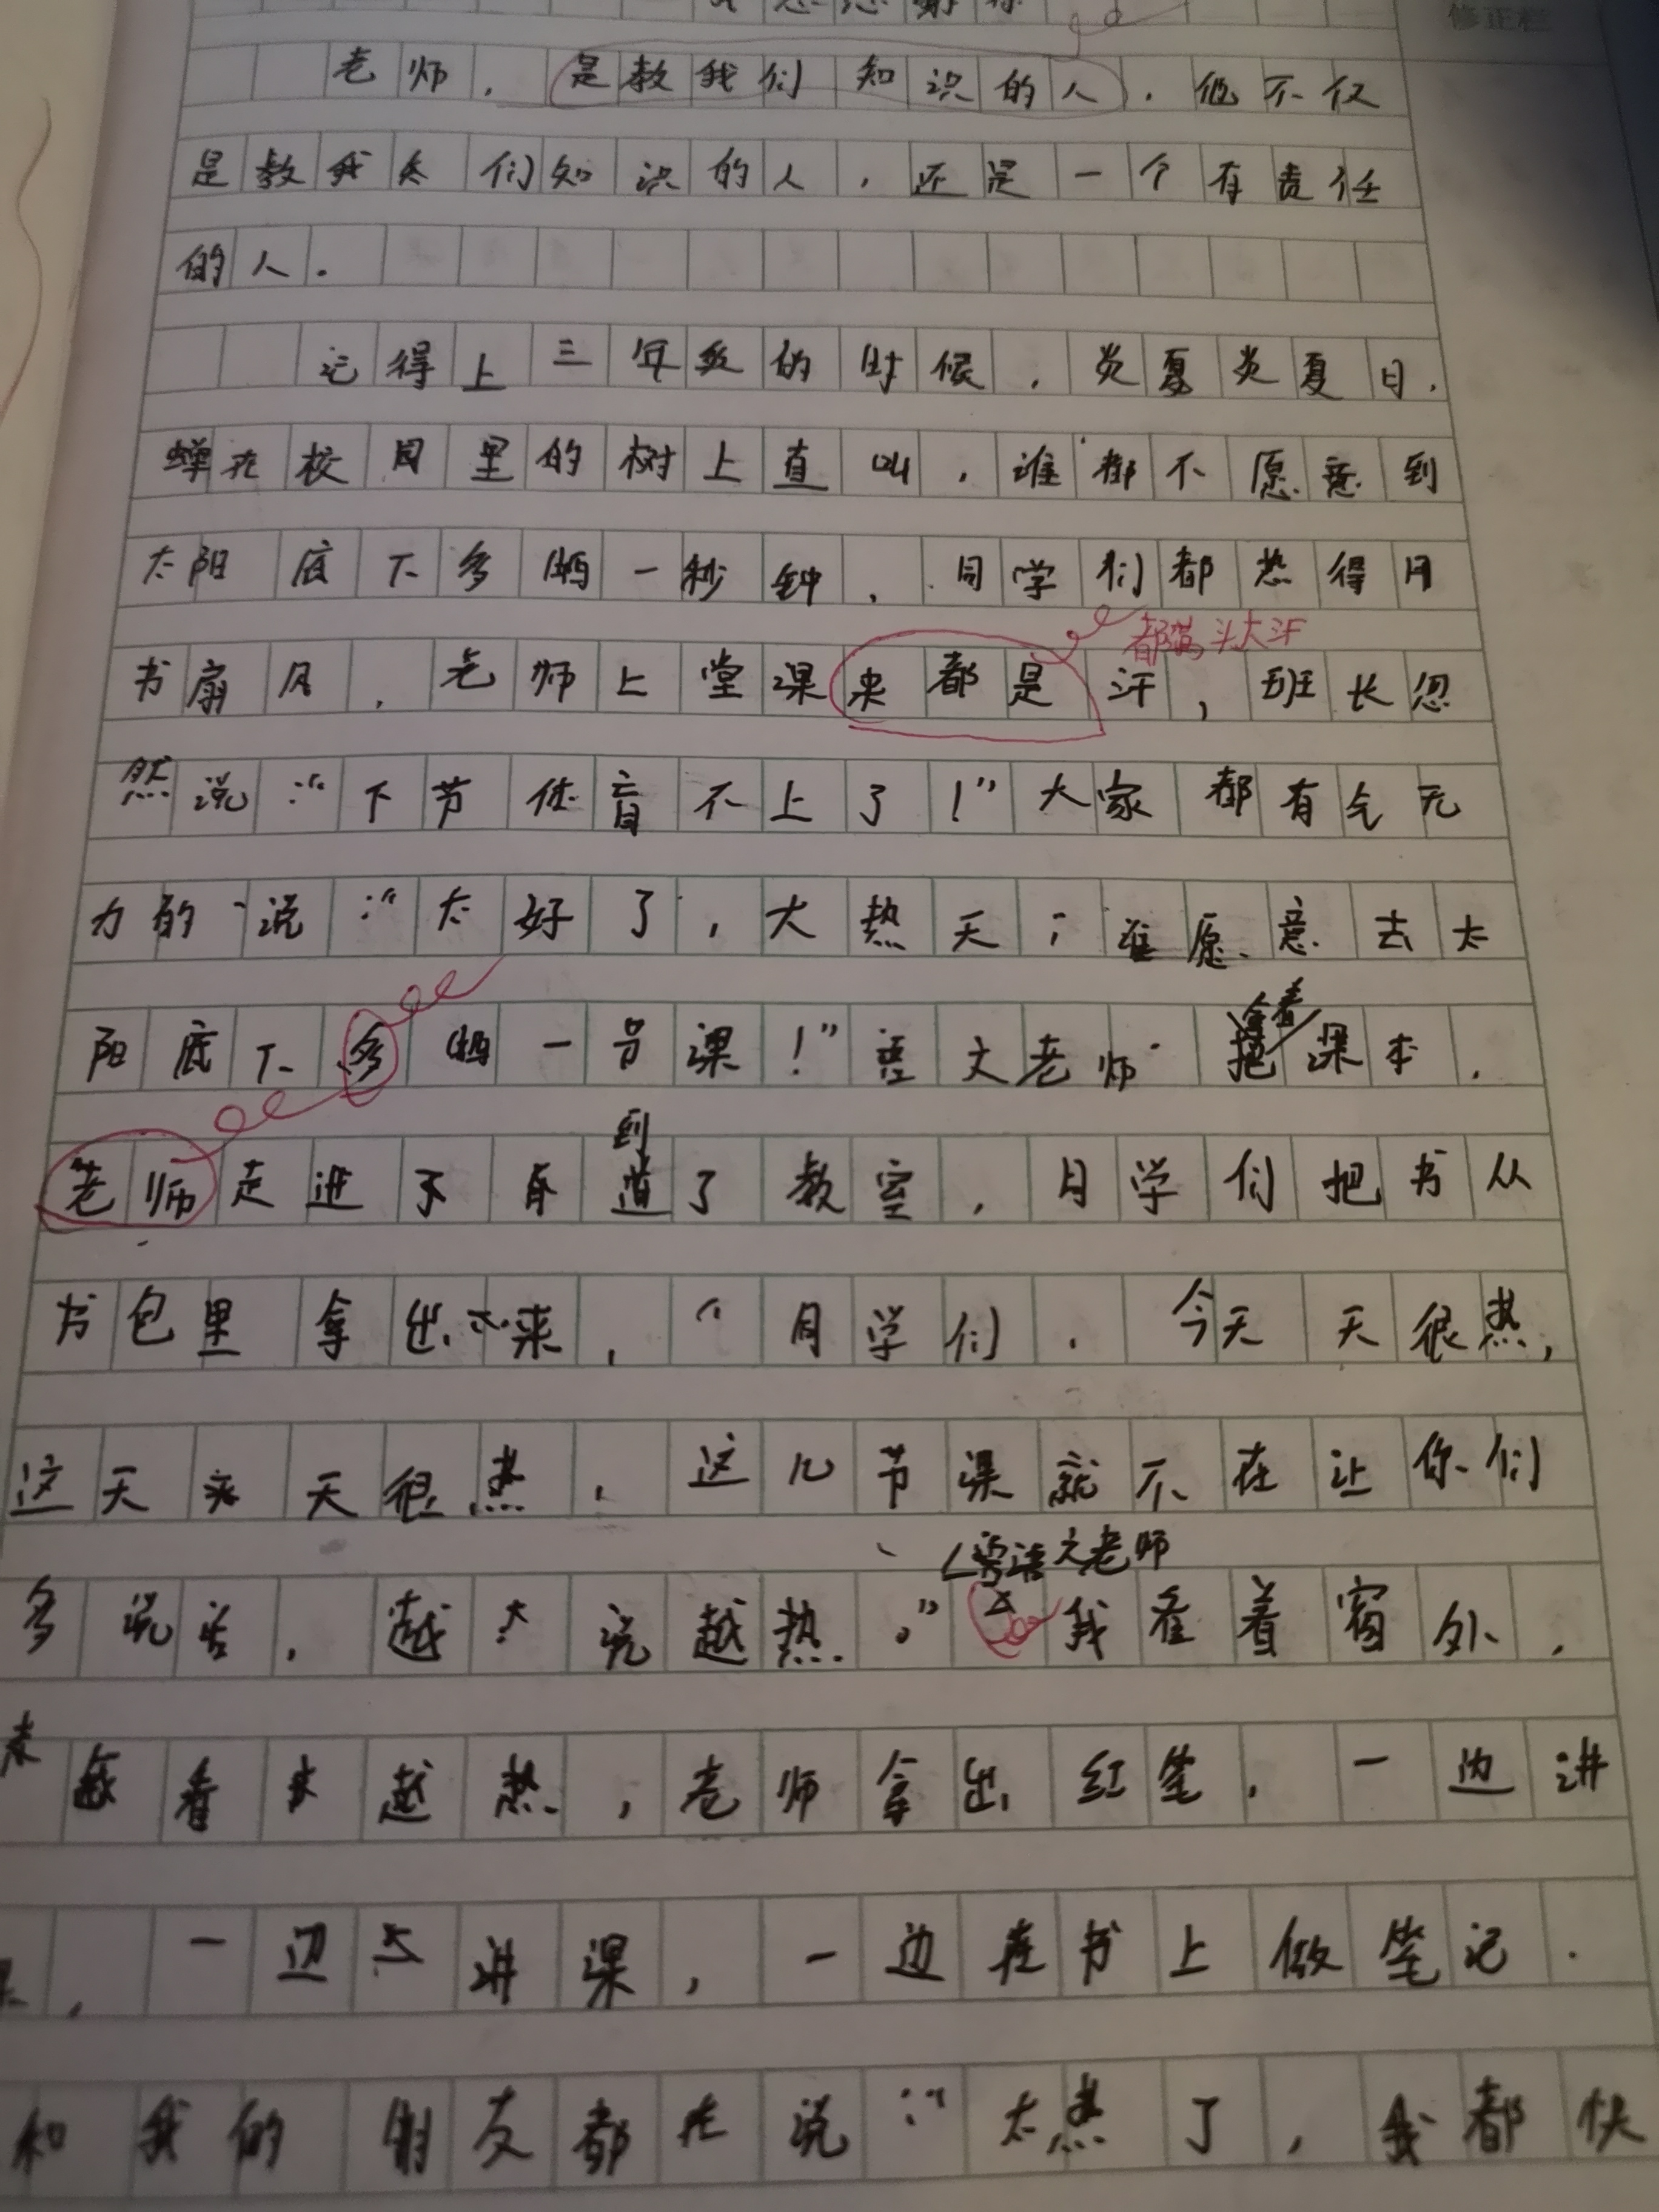 修正栏
老师，是教我们知识的人，他不仅
是教我们知识的人，还是一个有责任
的人．
记得上三年级的时候，炎夏炎夏日，
蝉在校园里的树上直叫，谁都不愿意到
太阳底下多晒一秒钟，同学们都热得用
都满头大汗
书扇风，老师上堂课来都是汗，班长忽
然说：“下节体育不上了！”大家都有气无
力的说：“太好了，大热天，谁愿意去太
阳底下多晒一节课！”语文老师拿着课本，
到
老师走进了教室，同学们把书从
书包里拿出来，“同学们，今天天很热，
这天天很热，这几节课就不在让你们
语文老师
多说话，越说越热。”我看着窗外，
越看越热，老师拿出红笔，一边讲
，一边讲课，一边在书上做笔记．
和我的朋友都在说：“太热了，我都快